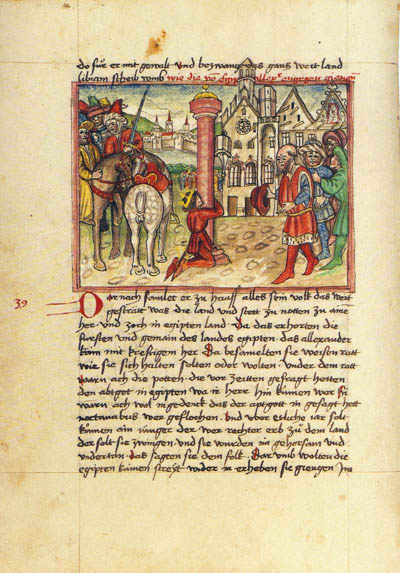 do für er mit gewalt und bezwang das gantz wert land
libiam scheib vmb wie die vō egipt aller engegen giengen
39
Dernach samlet er zu hauff alles sein volk das weit
gesträt was die land vnd stett zu notten zu ame
her und zoch in egipten land Da das erhorten die
fursten und gemain des landes egipten das allexander
kam mit kreftigem her Da besamelten sie weisen ratt
wie sie sich halten solten oder wolten under dem ratt
warn ach die potten die vor zeitten gefragt hetten
den abtgot in egipten wa ir herr hin kumen wer Sy
warn ach wol in gedenck das der aptgott in gesagt hett
noctanabus wer geflochen Vnd vber etliche iar solt
kumen ain iunger der wer rechter erb zu dem land
der solt sie zwingen und sie wurden im gehorsam und
vndertan das sagten sie dem folk Dar vmb wolten die
egipten kainen streyt wider in erheben sie giengen im